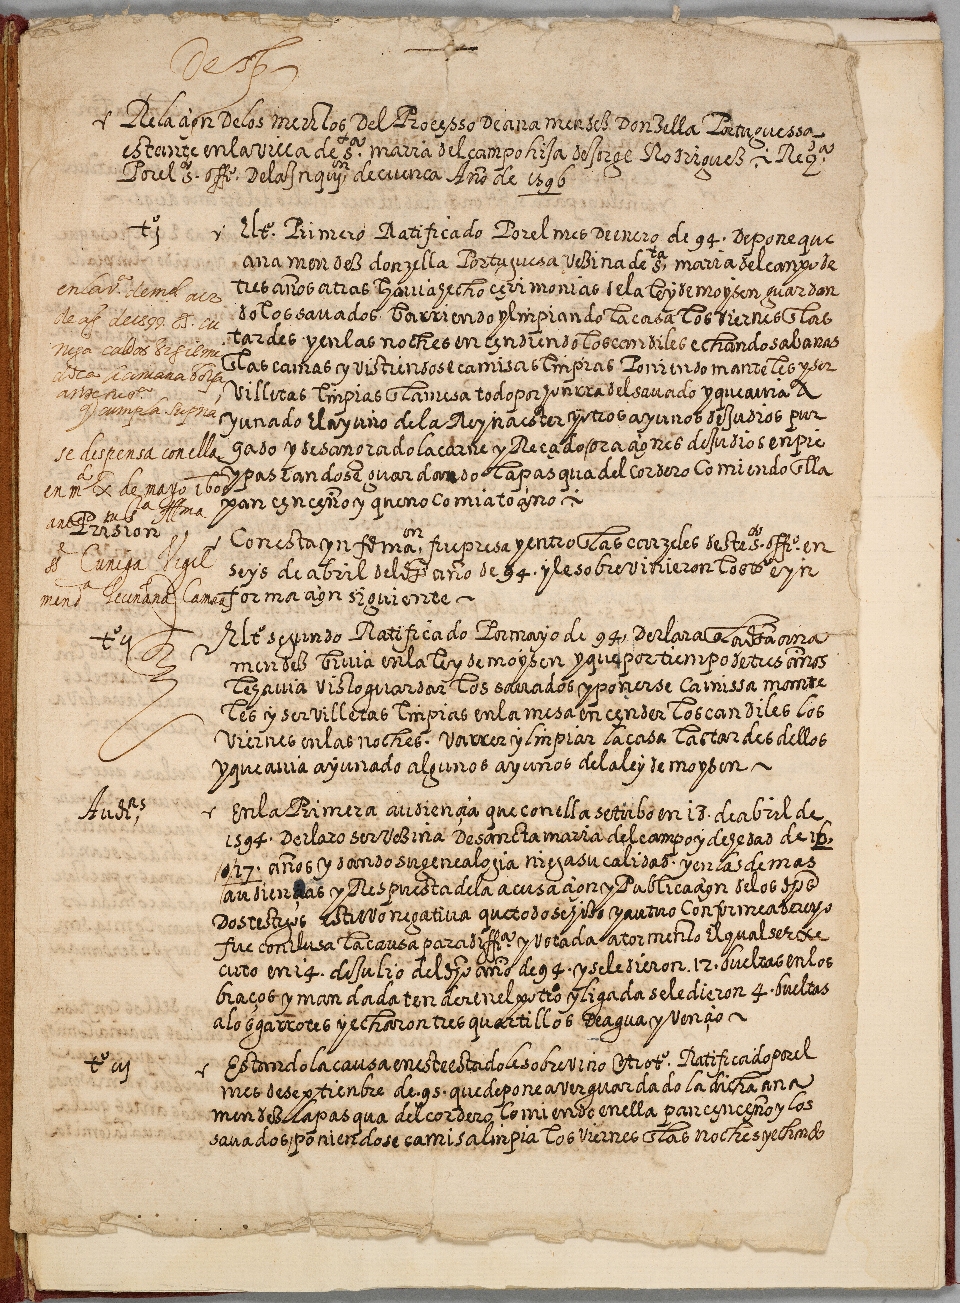 Relaçion de los meritos del Processo de ana mendez donzella Portuguessa
estante en la villa de sta. maria del campo hija de Jorge Rodriguez
Por el sto. offo. de la Inqqon. de cuenca Año de 1596
to. j
El to. Primero Ratificado Por el mes de enero de 94. depone que
ana mendez donzella Portuguesa vezina de sta. maria del campo de
tres años atras havia hecho cerimonias de la ley de moysen guardan
do los savados barriendo y limpiando la casa los viernes a las
tardes y en las noches encendiendo los candiles echando sabanas
a las camas y vistiendose camisas limpias Poniendo manteles y ser
villetas limpias a la mesa todo por honrra del savado y que avia a
yunado el ayuno de la Reyna ester y otros ayunos de Judios pur
gado y desangrado la carne y Reçado oraçiones de Judios en pie
y passandose guardando la pasqua del cordero Comiendo en ella
pan cenceño y que no comia toçino
se despensa con ella
en md. x de mayo 1600
Prision
Con esta ynforman. fue presa y entro en las carzeles deste sto. offo. en
seys de abril del dho año de 94. y le sobrevinieron los tos. e yn
formaçion siguiente
to. ij
El to. segundo Ratificado Por mayo de 94, declara que la dha ana
mendez bivia en la ley de moysen y que por tiempo de tres años
les avia visto guardar los savados y ponerse camissa mante
les y servilletas limpias en la mesa ençender los candiles los
viernes en las noches. varrer y limpiar la casa las tardes dellos
y que avia ayunado algunos ayunos de la ley de moysen
Audias.
En la Primera audiençia que con ella se tubo en 18. de abril de
1594. declaro ser vezina de sancta maria del campo y de hedad de 16.
o 17. años y dando su genealogia niega su calidad. y en las demas
audiençias y Respuesta de la acusaçion y Publicaçion de los dhos
dos testigos estuvo negativa que todo se hizo y autuo Conforme a derecho
fue conclusa la causa para diffa. y votada a tormento el qual se exe
cuto en 14. de Julio del dho año de 94. y se le dieron. 12. bueltas en los
braços y mandada tender en el potro y ligada se le dieron 4. bueltas
a los garrotes y echaron tres quartillos de agua y vençio
to. iij
Estando la causa en este estado le sobrevino otro to. Ratificado por el
mes de septiembre de .95. que depone aver guardado la dicha ana
mendez la pasqua del cordero, Comiendo en ella pan cenceño y los
savados poniendose camisa limpia los viernes a las noches y echando